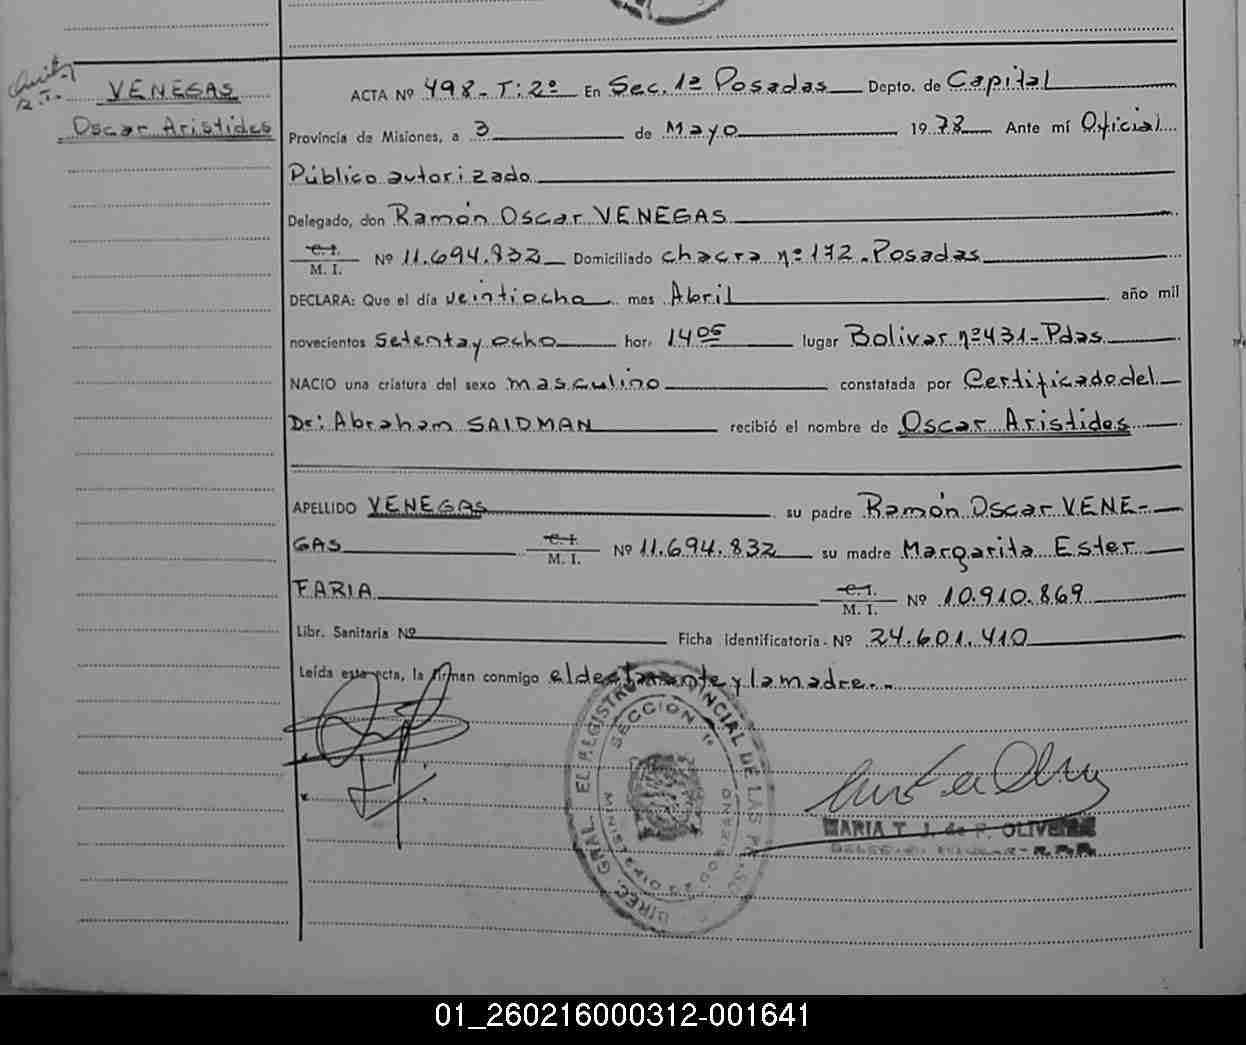 VENEGAS
Oscar Aristides
ACTA Nº 498 - T: 2º En Sec. 1ª Posadas Depto. de Capital
Provincia de Misiones, a 3 de Mayo 1978 Ante mí Oficial
Público autorizado
Delegado, don Ramón Oscar VENEGAS
C.I. / M. I. Nº 11.694.832 Domiciliado chacra nº 172. Posadas
DECLARA: Que el día veintiocho mes Abril año mil
novecientos setenta y ocho hor. 14 05 lugar Bolivar nº 431 - Pdas
NACIO una criatura del sexo masculino constatada por Certificado del
Dr: Abraham SAIDMAN recibió el nombre de Oscar Aristides
APELLIDO VENEGAS su padre Ramón Oscar VENE-
GAS C.I. / M. I. Nº 11.694.832 su madre Margarita Ester
FARIA C.I. / M. I. Nº 10.910.869
Libr. Sanitaria Nº Ficha identificatoria - Nº 24.601.410
Leída esta acta, la firman conmigo el declarante y la madre.-
DIREC. GRAL. EL REGISTRO PROVINCIAL DE LAS PERSO
SECCION 1ª
MARIA T. J. de P. OLIVERA
01_260216000312-001641